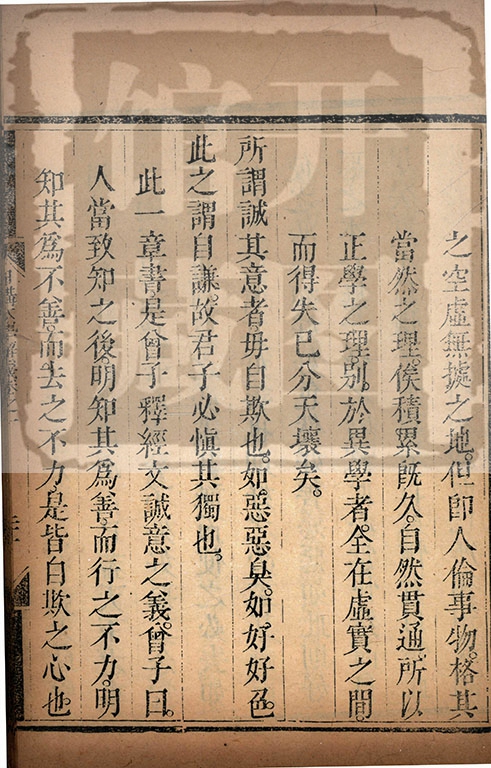 之空虛無據之地。但即人倫事物。格其
當然之理。俟積累旣久。自然貫通。所以
正學之理。別於異學者。全在虛實之間。
而得失已分天壤矣。
所謂誠其意者。毋自欺也。如惡惡臭。如好好色。
此之謂自謙。故君子必愼其獨也。
此一章書。是曾子釋經文誠意之義。曾子曰。
人當致知之後。明知其爲善。而行之不力。明
知其爲不善。而去之不力。是皆自欺之心也。